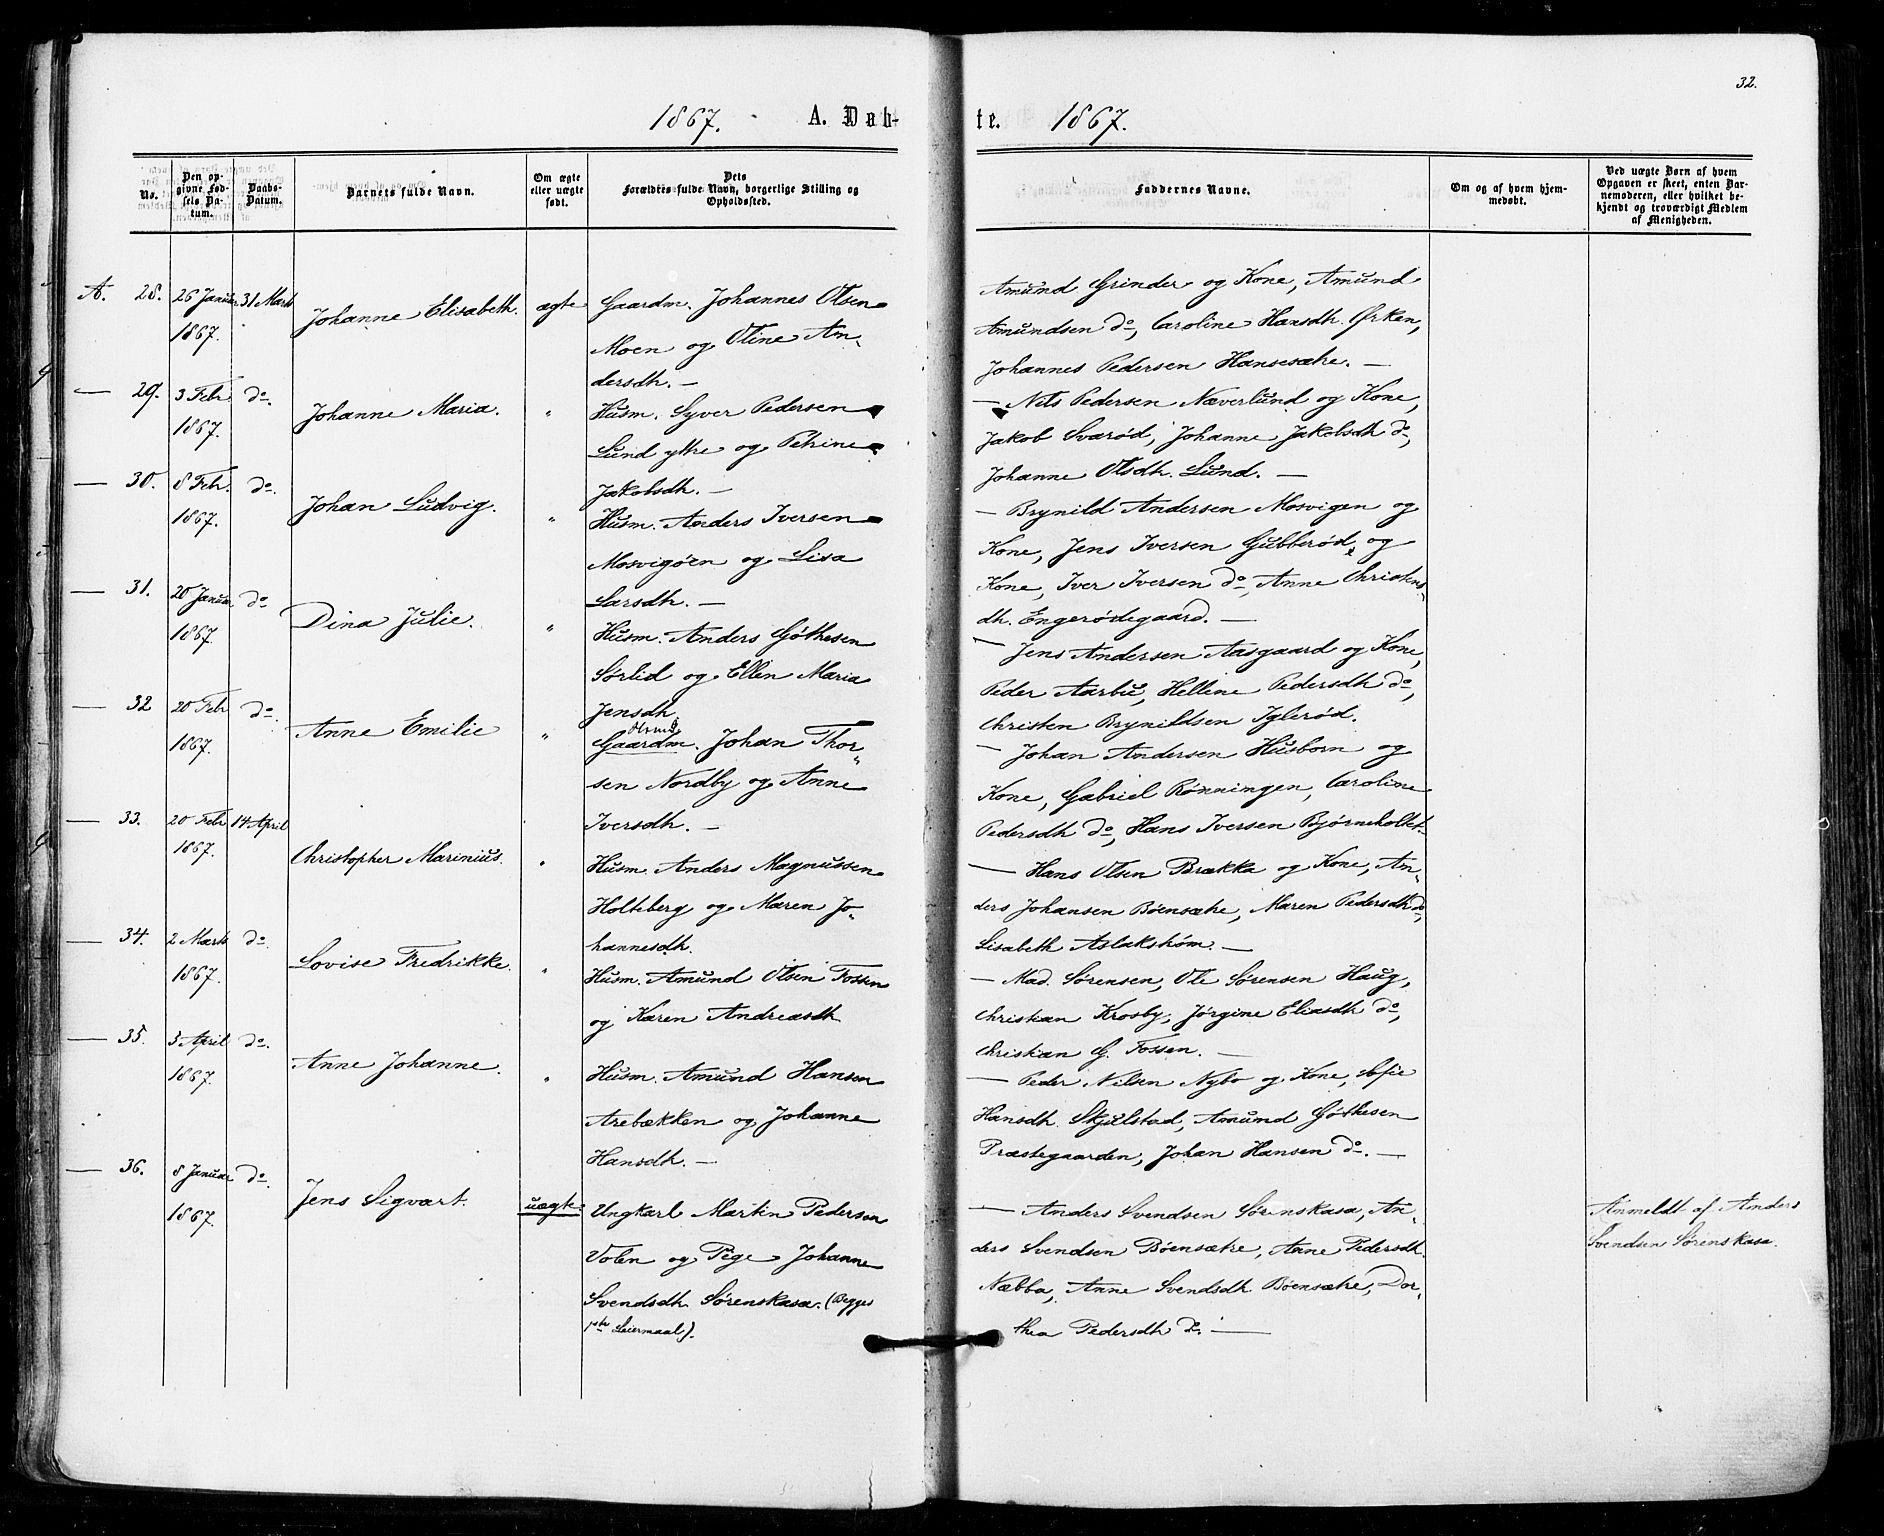 32.
1867. A. Døb-
te. 1867.
No.
Den op-
givne Fød-
sels Da-
tum.
Daabs-
Datum.
Barnets fulde Navn.
Om ægte
eller uægte
født.
Dets
Forældres fulde Navn, borgerlige Stilling og
Opholdssted.
Faddernes Navne.
Om og af hvem hjem-
medøbt.
Ved uægte Børn af hvem
Opgaven er skeet, enten Bar-
nemoderen, eller hvilket be-
kjendt og troværdigt Medlem
af Menigheden.
A. 28. 26 Januar 31 Marts
1867.
Johanne Elisabeth. ægte
Gaardm. Johannes Olsen
Moen og Oline An-
dersdh. —
Amund Grinder og Kone, Amund
Amundsen do, Caroline Hansdh. Ørken,
Johannes Pedersen Hansesætre. —
— 29. 3 Febr do.
1867.
Johanne Maria. "
Husm. Syver Pedersen
Lund ytre og Petrine
Jakobsdh. —
— Nels Pedersen Næverlund og Kone,
Jakob Svarød, Johanne Jakobsdh do,
Johanne Olsdh. Lund. —
— 30. 8 Febr. do.
1867.
Johan Ludvig. "
Husm. Anders Iversen
Mosvigøen og Lisa
Larsdh. —
— Brynild Andersen Mosvigen og
Kone, Jens Iversen Gubberød, og
Kone, Iver Iversen do, Anne Christens-
dh. Engerødegaard. —
— 31. 20 Januar do
1867.
Dina Julie. "
Husm. Anders Gøthesen
Sørlid og Ellen Maria
Jensdh
— Jens Andersen Aasgaard og Kone,
Peder Aarbu, Helline Pedersdh do,
Christen Brynildsen Iglerød.
— 32 20 Febr do.
1867.
Anne Emilie "
Gaardm. Johan Thor-
sen Nordby og Anne
Iversdh. —
— Johan Andersen Husborn og
Kone, Gabriel Rønningen, Caroline
Pedersdh do, Hans Iversen Bjørneholtet.
— 33. 20 Febr 14 April
1867.
Christopher Marinius. "
Husm. Anders Magnussen
Holteberg og Maren Jo-
hannesdh.
— Hans Olsen Brækka og Kone, An-
ders Johansen Bøensætre, Maren Pedersdh do,
Lisabeth Aslakstrøm. —
— 34. 2 Marts do.
1867.
Lovise Fredrikke. "
Husm. Amund Olsen Fossen
og Karen Andreasdh
— Mad. Sørensen, Ole Sørensen Haug,
Christian Krosby, Jørgine Eliasdh do,
Christian G. Fossen. —
— 35. 5 April do.
1867.
Anne Johanne. "
Husm. Amund Hansen
Arebækken og Johanne
Hansdh. —
— Peder Nilsen Nybo og Kone, Sofie
Hansdh. Skjulstad, Amund Gøthesen
Præstegaarden, Johan Hansen do. —
— 36. 8 Januar do.
1867.
Jens Sigvart. uægte
Ungkarl Martin Pedersen
Volen og Pige Johanne
Svendsdh. Sørenskasa. (Begges
1ste Leiermaal).
— Anders Svendsen Sørenskasa, An-
ders Svendsen Bøensætre, Anne Pedersdh
Næbba, Anne Svendsdh. Bøensætre, Dor-
thea Pedersdh do. —
Anmeldt af Anders
Svendsen Sørenskasa.